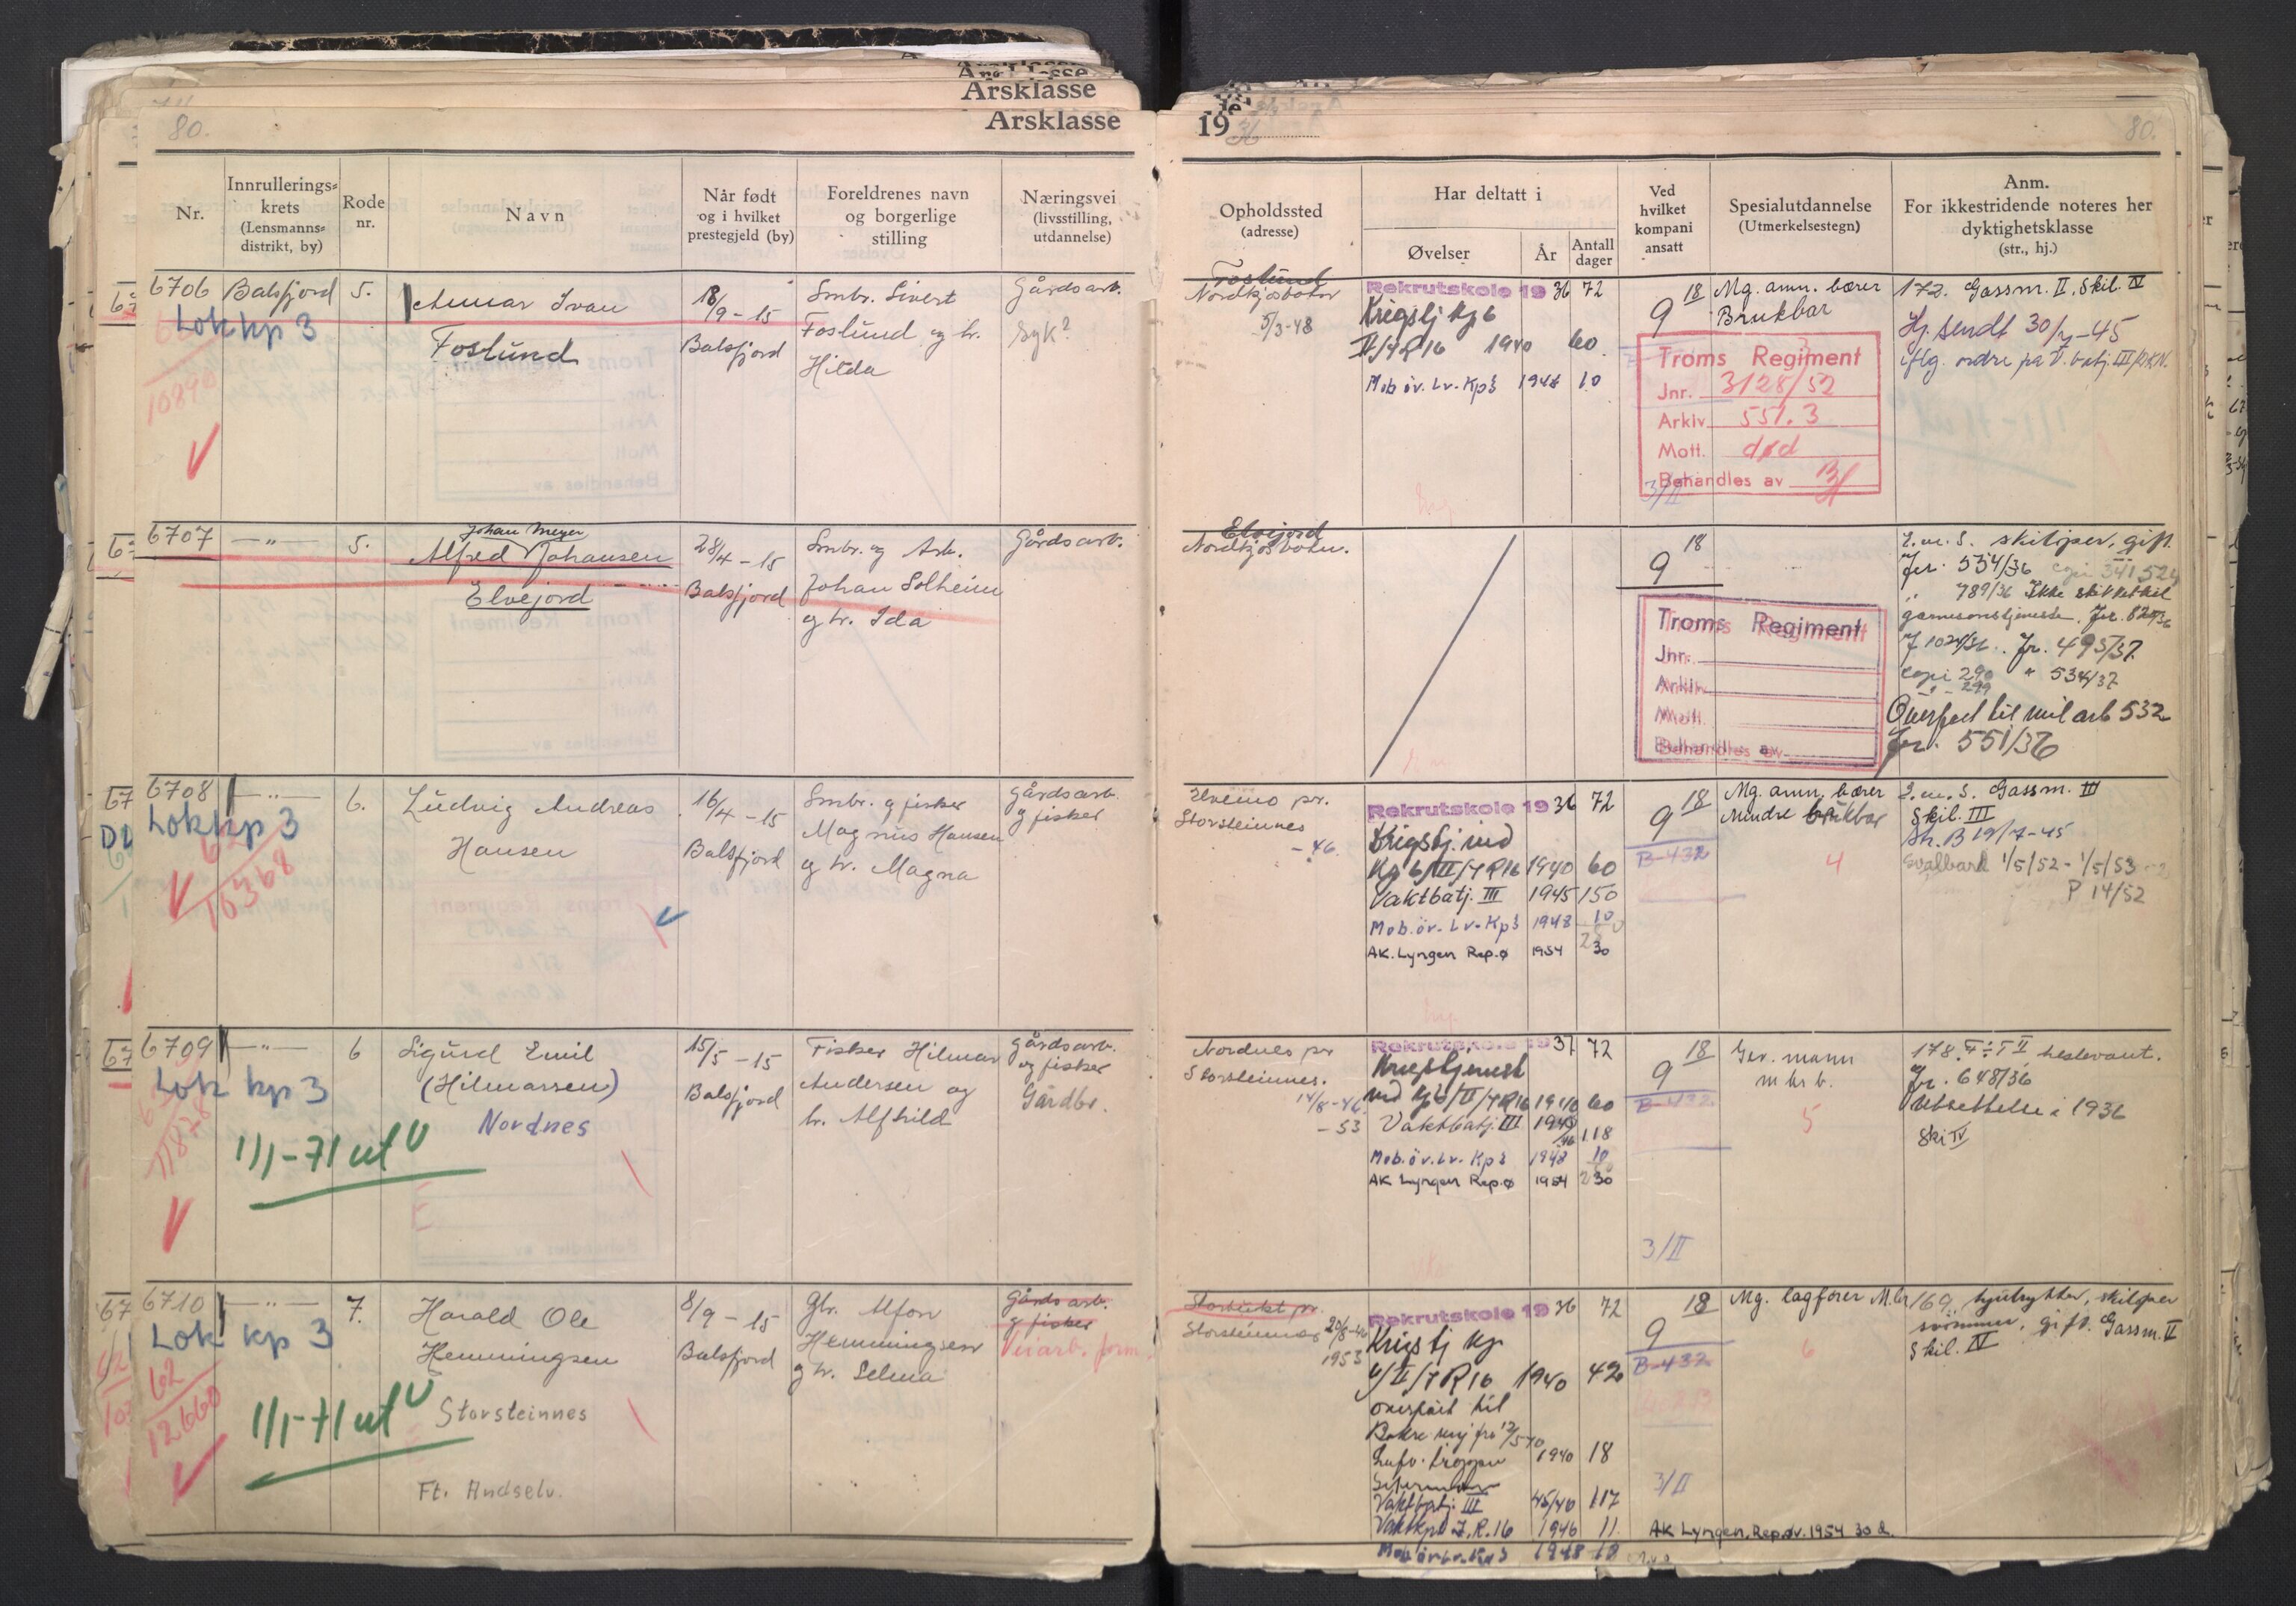 Årsklasse
Årsklasse
80.
Nr.
Innrullerings=
krets
(Lensmanns=
distrikt, by)
Rode
nr.
Navn
Når født
og i hvilket
prestegjeld (by)
Foreldrenes navn
og borgerlige
stilling
Næringsvei
(livsstilling,
utdannelse)
6706 Balsfjord 5.
Lok kp 3
Ivan
Foslund
18/9-15
Balsfjord
Smbr. Sivert
Foslund og h.
Hilda
Gårdsarb.
syk?
10890
6707 —"— 5.
Johan Meyer
Alfred Johansen
Elvejord
28/4-15
Balsfjord
Smbr. og Arb.
Johan Solheim
og h. Ida
Gårdsarb.
6708 —"— 6.
Lok kp 3
62
16368
Ludvig Andreas
Hansen
16/4-15
Balsfjord
Smbr. og fisker
Magnus Hansen
og h. Magna
Gårdsarb.
og fisker
6709 —"— 6
Lok kp 3
1/1-71 ut
Sigurd Emil
(Hilmarssen)
Nordnes
15/5-15
Balsfjord
Fisker Hilmar
Andersen og
h. Alfhild
Gårdsarb.
og fisker
Gårdbr.
6710 —"— 7.
Lok kp 3
62
12660
1/1-71 ut
Harald Ole
Hemmingsen
Storsteinnes
Ft. Andselv.
8/9-15
Balsfjord
Gbr. Alfon
Hemmingsen
og h. Selma
Gårdsarb.
og fisker
Veiarb. form.
1936
80.
Opholdssted
(adresse)
Har deltatt i
Øvelser
År
Antall
dager
Ved
hvilket
kompani
ansatt
Spesialutdannelse
(Utmerkelsestegn)
Anm.
For ikkestridende noteres her
dyktighetsklasse
(str., hj.)
Foslund
Nordkjosbotn
5/3-48
Rekrutskole 1936 72
Krigstj Kp 6
II/IR16 1940 60
Mob öv. Lv-Kp 3 1948 10
9 18
Mg. amn. bærer
Brukbar
Troms Regiment
Jnr. 3128/52
Arkiv 551.3
Mott. død
Behandles av
172. Gassm. II, Skil. IV
Hj. sendt 30/7-45
iflg. ordre fra V. batj. III/DKN.
Elvejord
Nordkjosbotn.
9 18
Troms Regiment
Jnr.
Arkiv
Mott.
Behandles av
L.m.S. skiløper, gift.
Jnr. 534/36
789/36 Ikke skikket til
garnisonstjeneste.
Jr. 495/37.
copi 290 " 534/37
299
Overført til mil arb 532
Jr. 551/36
Storsteinnes
-46.
Rekrutskole 1936 72
Krigstj. ved
Kp 6/II/IR16 1940 60
Vaktbatj. III 1945 150
Mob.öv. Lv-Kp 3 1948 10
AK. Lyngen Rep.ø 1954 30
9 18
B-432
Mg. amn. bærer
Mindre brukbar
4
L.m.S. Gassm. III
Skil. III
Str. B 19/7-45
Svalbard 1/5/52 - 1/5/53
P 14/52
Nordnes pr
Storsteinnes.
14/8-46
-53
Rekrutskole 1937 72
Krigstjenest
ved Kp 6/II/IR16 1940 60
Vaktbatj. III 1945/46 118
Mob.öv. Lv-Kp 3 1948 10
AK Lyngen Rep.ø 1954 30
9 18
B-432
3/II
Gev. mann
m br b.
5
Jr. 648/36
Utsettelse i 1936
Ski IV
Storsteinnes
20/8-46
1953
Rekrutskole 1936 72
Krigstj Kp
4/II/IR16 1940 42
overført til
1940 18
Vaktbatj. III 45/46 117
Vaktkp I.R.16 1946 11.
Mob öv. Lv. Kp 3 1948 10
9 18
B-432
3/II
Mg. lagfører M.br
6
AK Lyngen, Rep.øv. 1954 30 d.
169, hjulrytter, skiløper
svømmer, gift. Gassm. II
Skil. IV